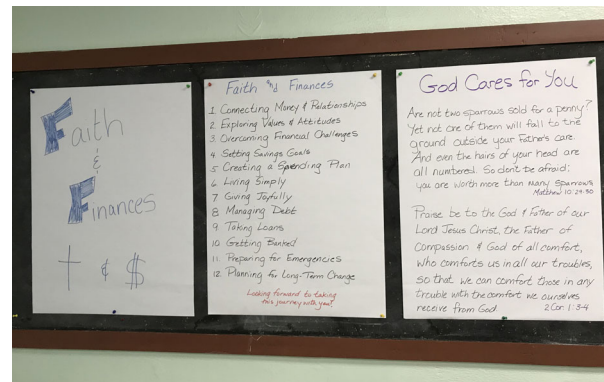 Faith
&
Finances
† & $
Faith and Finances
1. Connecting Money & Relationships
2. Exploring Values & Attitudes
3. Overcoming Financial Challenges
4 Setting Savings Goals
5 Creating a Spending Plan
6. Living Simply
7 Giving Joyfully
8 Managing Debt
9 Taking Loans
10 Getting Banked
11. Preparing for Emergencies
12. Planning for Long-Term Change
Looking forward to taking
this journey with you!
God Cares for You
Are not two sparrows sold for a penny?
Yet not one of them will fall to the
ground outside your Father's care
And even the hairs of your head are
all numbered. So don't be afraid;
you are worth more than many sparrows
Matthew 10:29-30
Praise be to the God & Father of our
Lord Jesus Christ, the Father of
Compassion & God of all comfort,
who comforts us in all our troubles,
so that we can comfort those in any
trouble with the comfort we ourselves
receive from God 2 Cor 1:3-4